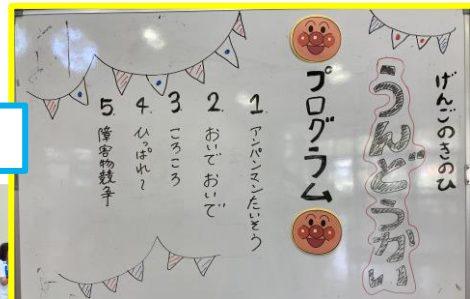 げんごのきのひ
うんどうかい
プログラム
1. アンパンマンたいそう
2. おいで おいで
3. ころころ
4. ひっぱれ〜
5. 障害物競争